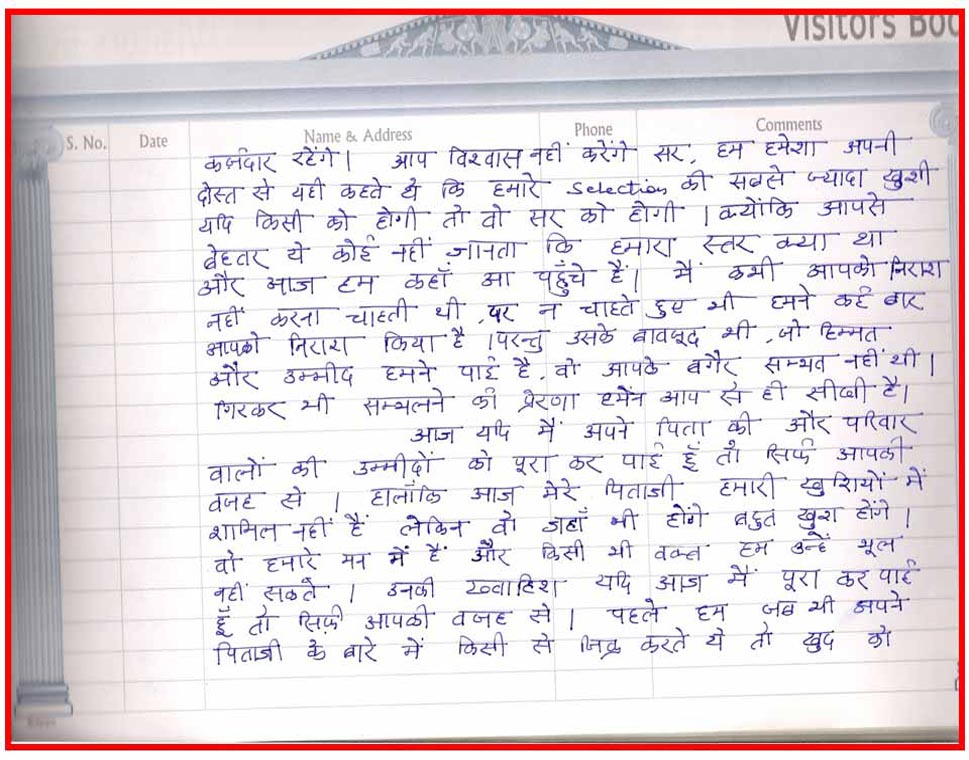 Visitors Boo
S. No. Date Name & Address Phone Comments
कर्जदार रहेंगे। आप विश्वास नहीं करेंगे सर, हम हमेशा अपनी
दोस्त से यही कहते थे कि हमारे Selection की सबसे ज्यादा खुशी
यदि किसी को होगी तो वो सर को होगी । क्योंकि आपसे
बेहतर ये कोई नहीं जानता कि हमारा स्तर क्या था
और आज हम कहाँ आ पहुँचे हैं। मैं कभी आपको निराश
नहीं करना चाहती थी, पर न चाहते हुए भी हमने कई बार
आपको निराश किया है । परन्तु उसके बावजूद भी, जो हिम्मत
और उम्मीद हमने पाई है, वो आपके बगैर सम्भव नहीं थी।
गिरकर भी सम्भलने की प्रेरणा हमेंन आप से ही सीखी है।
आज यदि मैं अपने पिता की और परिवार
वालों की उम्मीदों को पूरा कर पाई हूँ तो सिर्फ आपकी
वजह से । हालाँकि आज मेरे पिताजी हमारी खुशियों में
शामिल नहीं हैं लेकिन वो जहाँ भी होंगे बहुत खुश होंगे।
वो हमारे मन में हैं और किसी भी वक्त हम उन्हें भूल
नहीं सकते । उनकी ख्वाहिश यदि आज मैं पूरा कर पाई
हूँ तो सिर्फ़ आपकी वजह से । पहले हम जब भी अपने
पिताजी के बारे में किसी से जिक्र करते थे तो खुद को